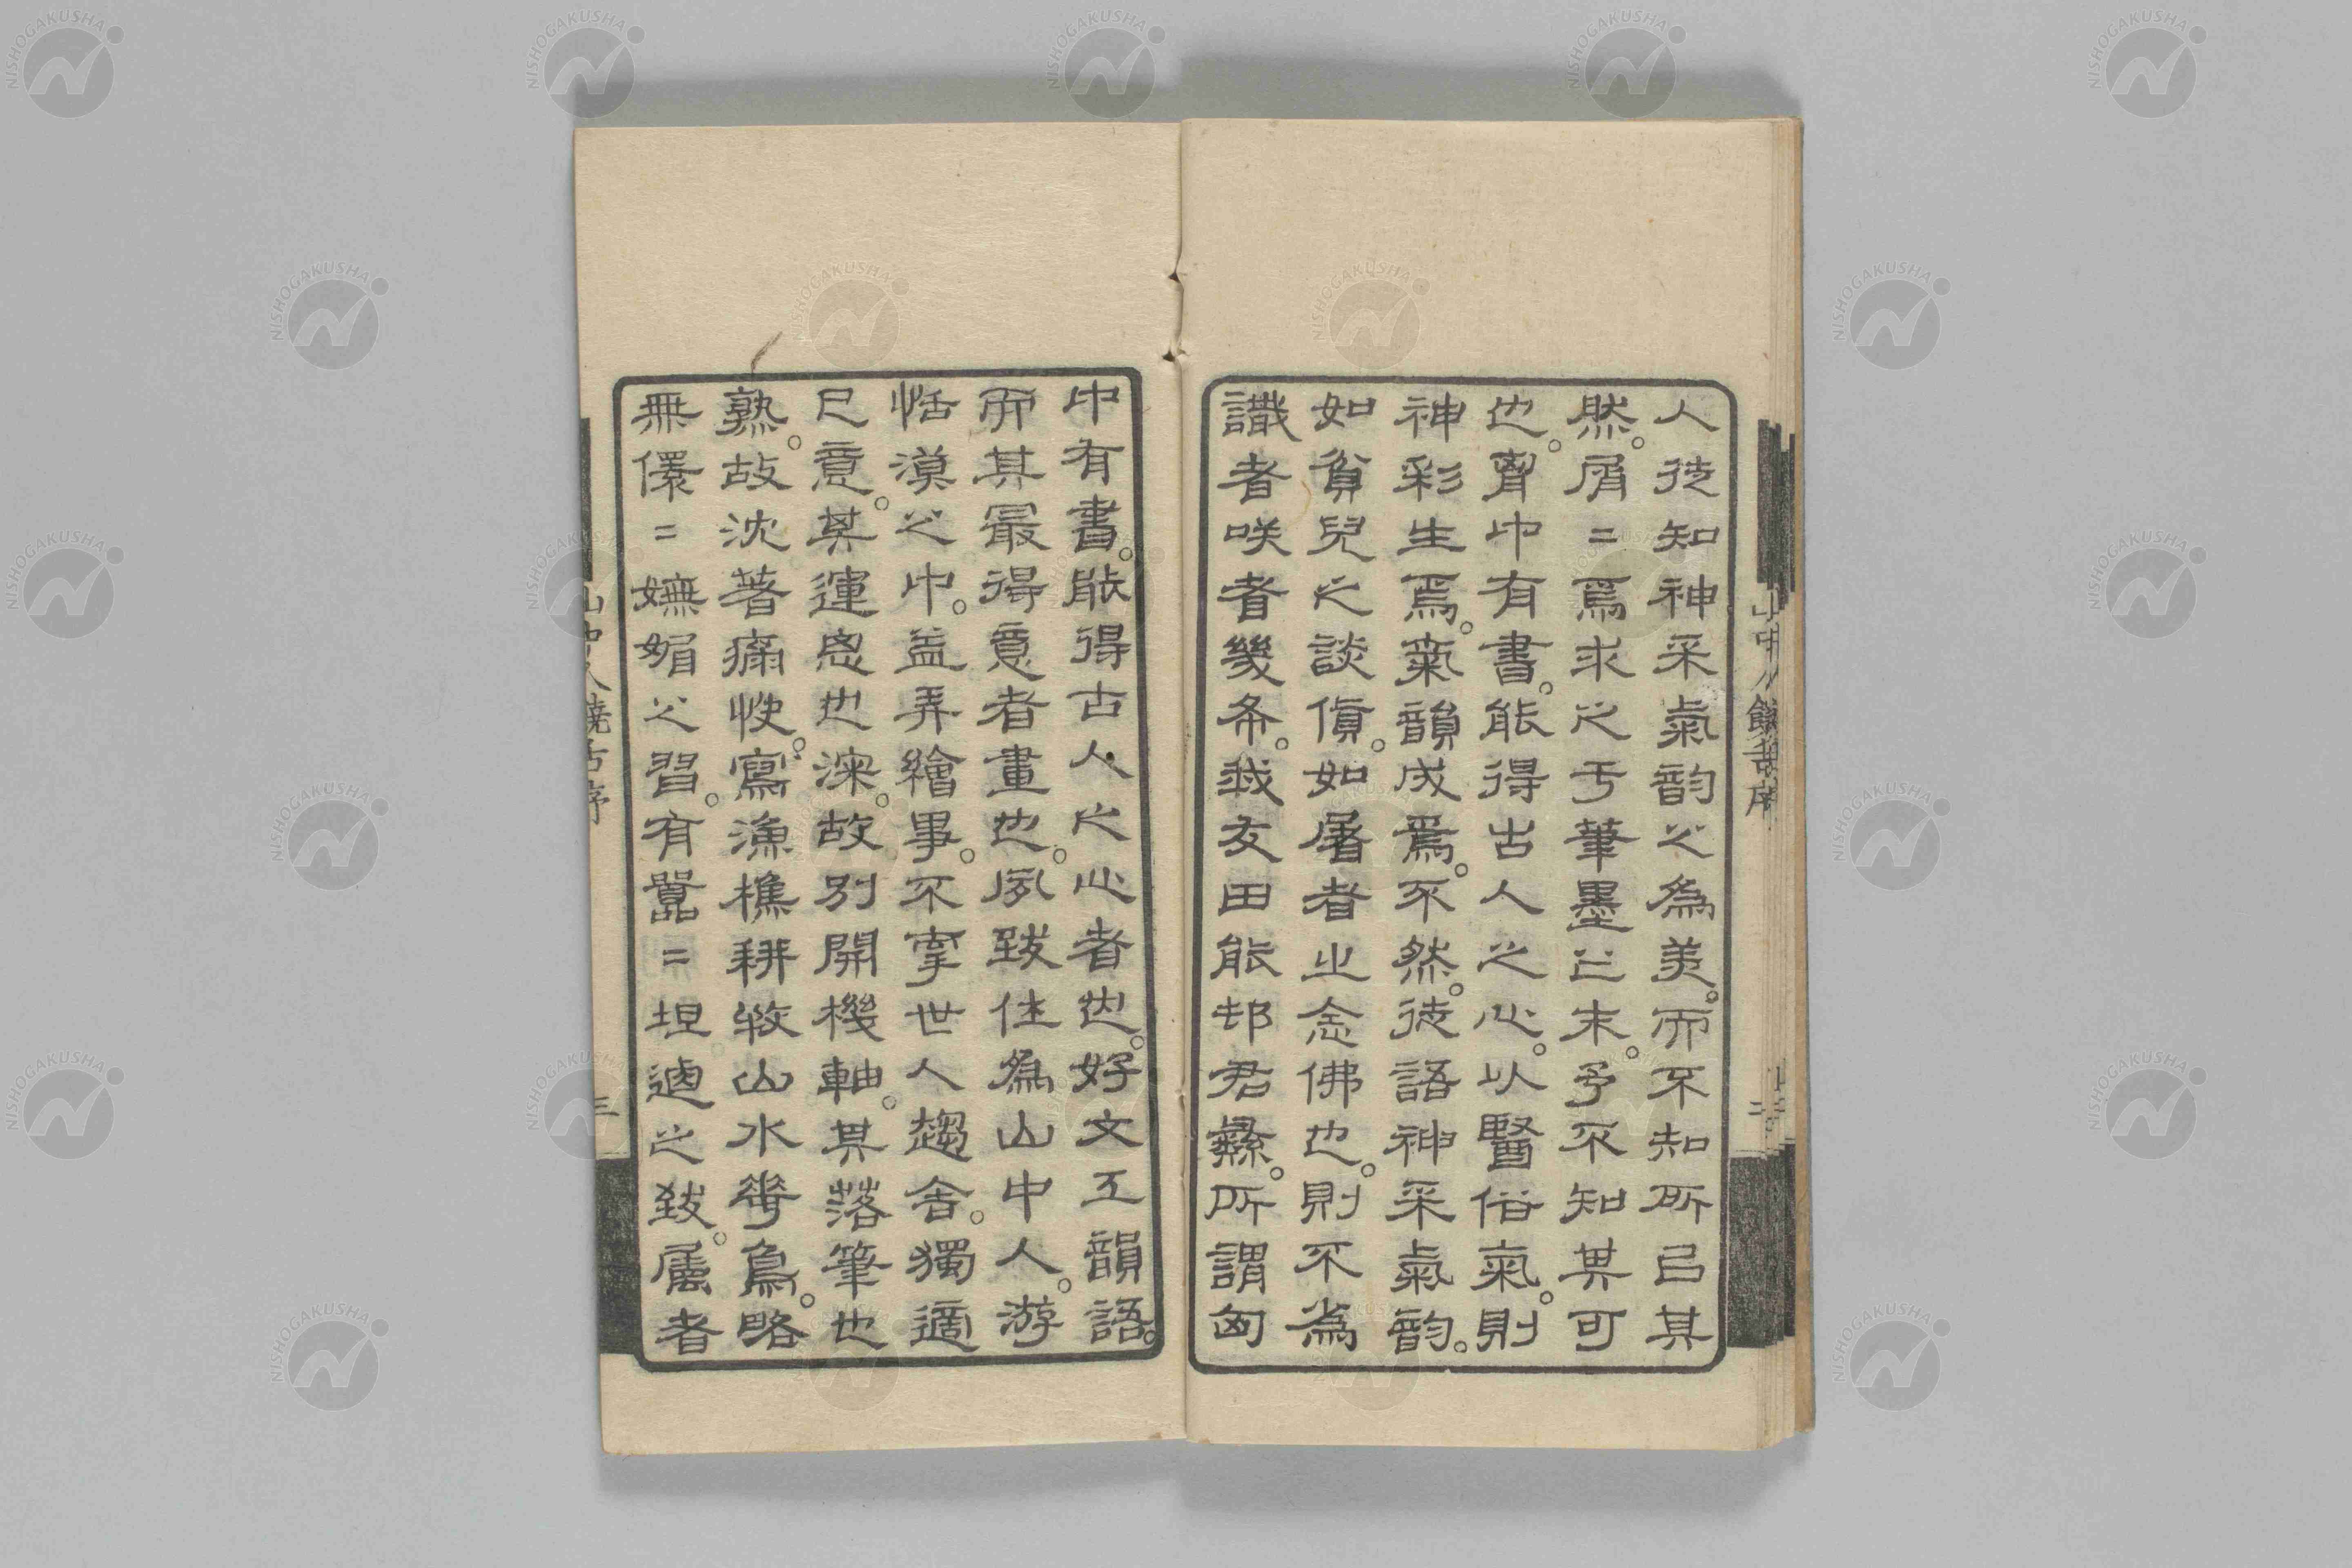 人徒知神采氣韵之爲美。而不知所㠯其
然。屑〻焉求之于筆墨之末。予不知其可
也。胷中有書。能得古人之心。以醫俗氣。則
神彩生焉。氣韻成焉。不然。徒語神采氣韵。
如貧兒之談貨。如屠者之念佛也。則不爲
識者咲者幾希。我友田能邨君彝。所謂匈
中有書。能得古人之心者也。好文工韻語。
而其最得意者畫也。夙致住爲山中人。游
恬漠之中。益弄繪事。不寧世人趨舍。獨適
己意。其運思也深。故別開機軸。其落筆也
熟。故沈著痛快。寫漁樵耕牧山水花鳥。略
無儇〻嫵媚之習。有囂〻坦適之致。屬者
山中人饒舌序
二
山中人饒舌序
三
NISHOGAKUSHA